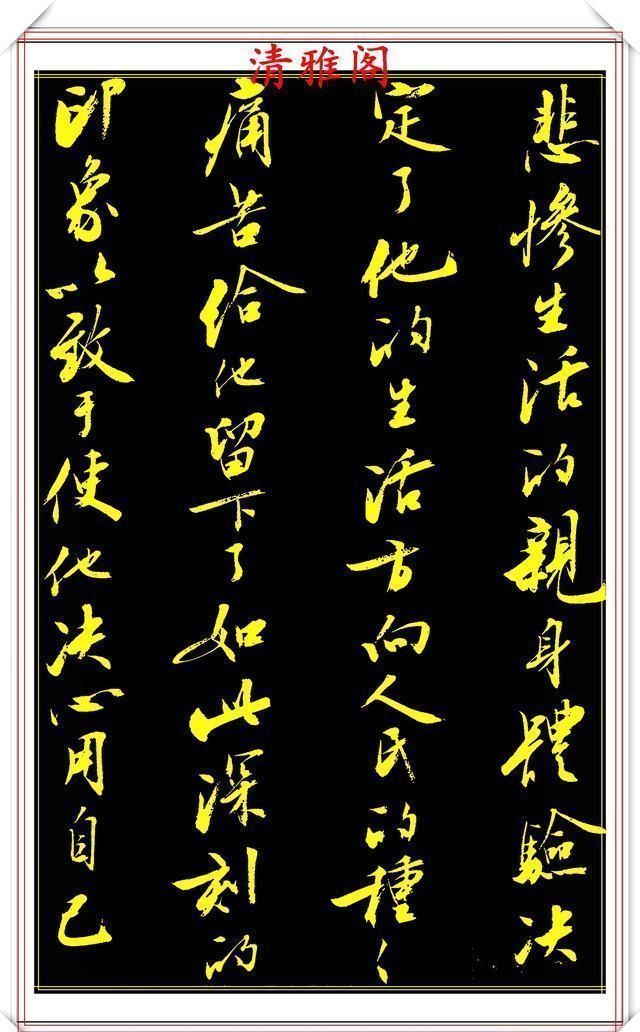 清雅阁
悲惨生活的親身體驗决
定了他的生活方向人民的種々
痛苦给他留下了如此深刻的
印象以致于使他决心用自己